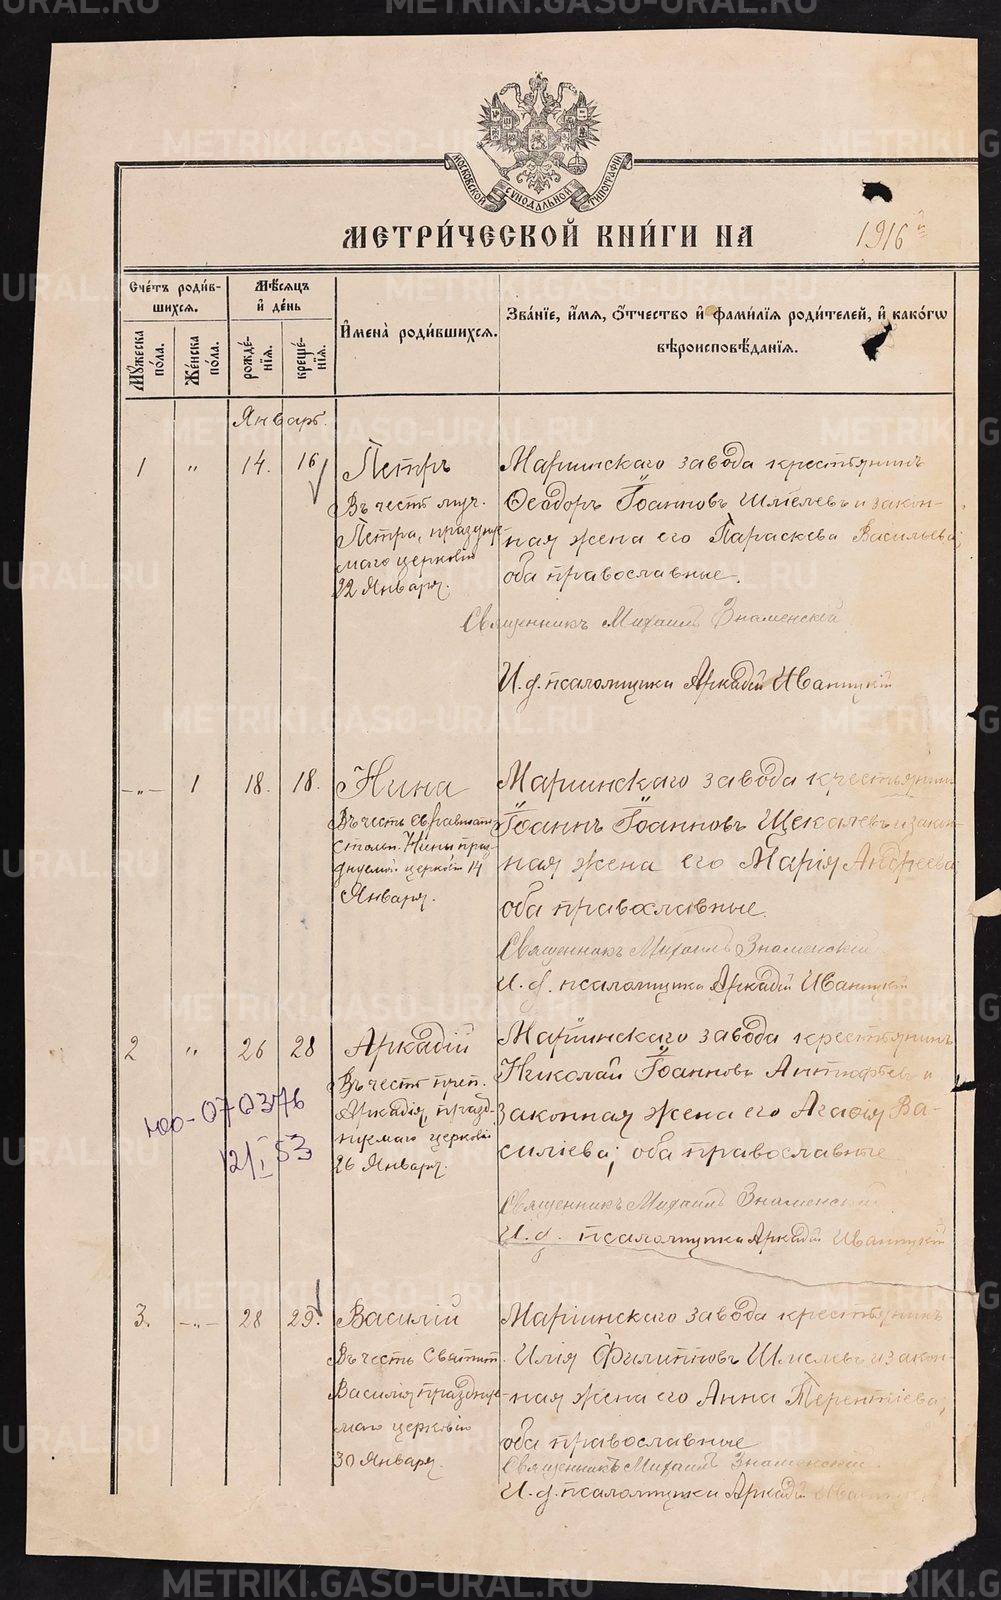 МОСКОВСКОЙ СѴНОДАЛЬНОЙ ТИПОГРАФІИ
МЕТРИ́ЧЕСКОЙ КНИ́ГИ НА 1916й
Сче́тъ роди́вшихся.
Мѣ́сяцъ и҆ де́нь
И҆мена̀ роди́вшихся.
Зва́нїе, и҆́мя, ѻ҆́тчество и҆ фами́лїя роди́телей, и҆ како́гѡ вѣроисповѣ́данїя.
Мꙋ́жеска по́ла.
Же́нска по́ла.
рожде́нїя.
креще́нїя.
Январь.
1 " 14. 16
Петръ
Въ честь муч.
Петра, праздну-
маго церковію
22 Января.
Маріинскаго завода крестьянинъ
Ѳеодоръ Іоанновъ Шмелевъ и закон-
ная жена его Параскева Васильева;
оба православные.
Священникъ Михаилъ Знаменскій
И. д. псаломщика Аркадій Иваницкій
-"- 1 18. 18.
Нина
Въ честь св. равноап
Нины праз-
днуемой церковію 14
Января.
Маріинскаго завода крестьянинъ
Іоаннъ Іоанновъ Щекалевъ и закон-
ная жена его Марія Андреева
оба православные.
Священникъ Михаилъ Знаменскій
И. д. псаломщика Аркадій Иваницкій
2 " 26 28
Аркадій
Въ честь преп.
Аркадія, празд-
нуемаго церковію
26 Января.
Маріинскаго завода крестьянинъ
Николай Іоанновъ Антюфѣевъ и
законная жена его Агафія Ва-
силіева; оба православные
Священникъ Михаилъ Знаменскій
И. д. псаломщика Аркадій Иваницкій
ЮО-070376
12/I 53
3. -"- 28 29.
Василій
Въ честь Святит.
Василія праздну-
маго церковію
30 Января.
Маріинскаго завода крестьянинъ
Илія Филипповъ Шмелевъ и закон-
ная жена его Анна Терентіева;
оба православные
Священникъ Михаилъ Знаменскій.
И. д. псаломщика Аркадій Иваницкій
METRIKI.GASO-URAL.RU